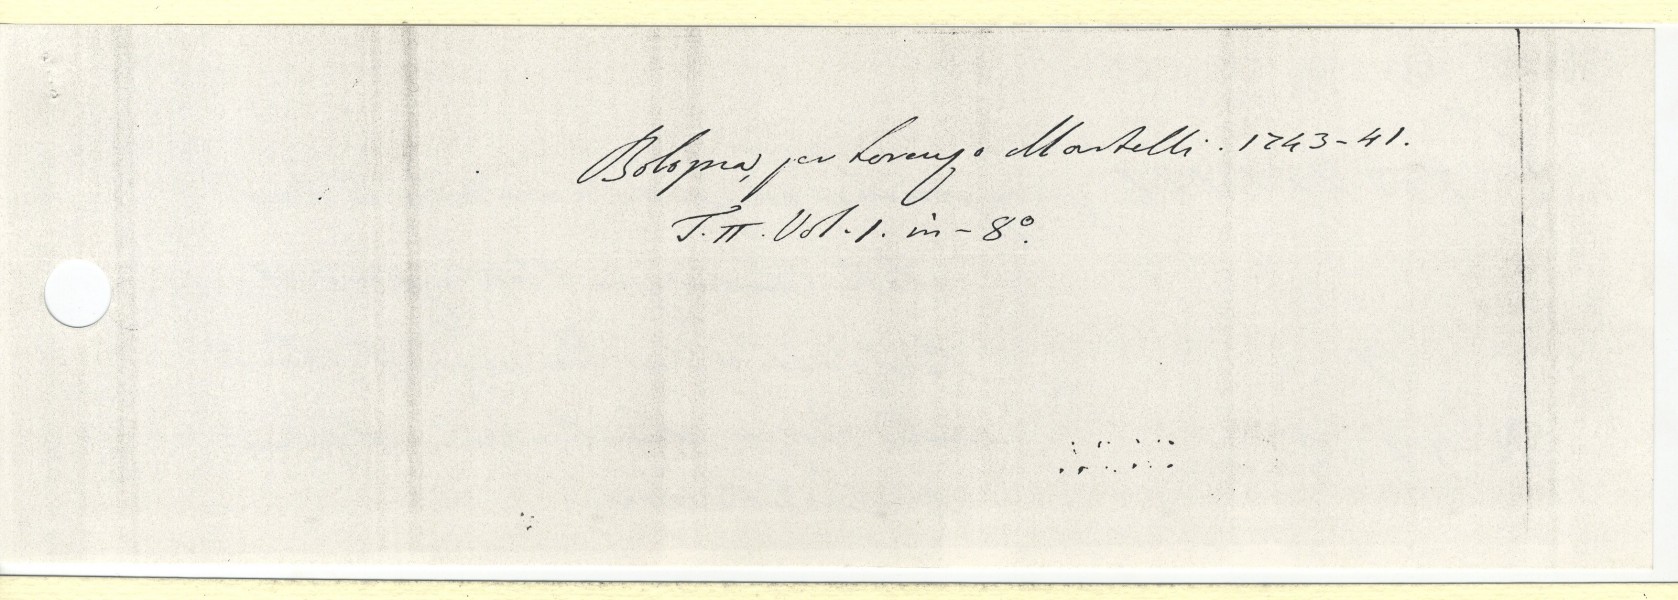 Bologna, per Lorenzo Martelli. 1743-41.
T. II. Vol. 1. in-8º.